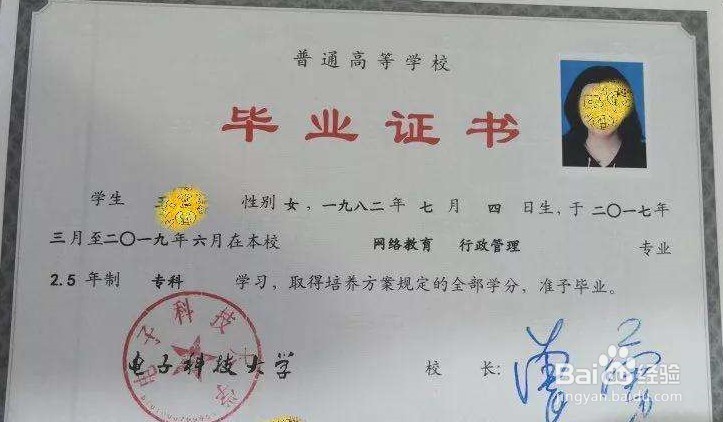 普通高等学校
毕业证书
学生 性别 女，一九八二年 七 月 四 日生，于二〇一七年
三月至二〇一九年六月在本校 网络教育 行政管理 专业
2.5 年制 专科 学习，取得培养方案规定的全部学分，准予毕业。
电子科技大学
电子科技大学 校 长：
Baidu经验